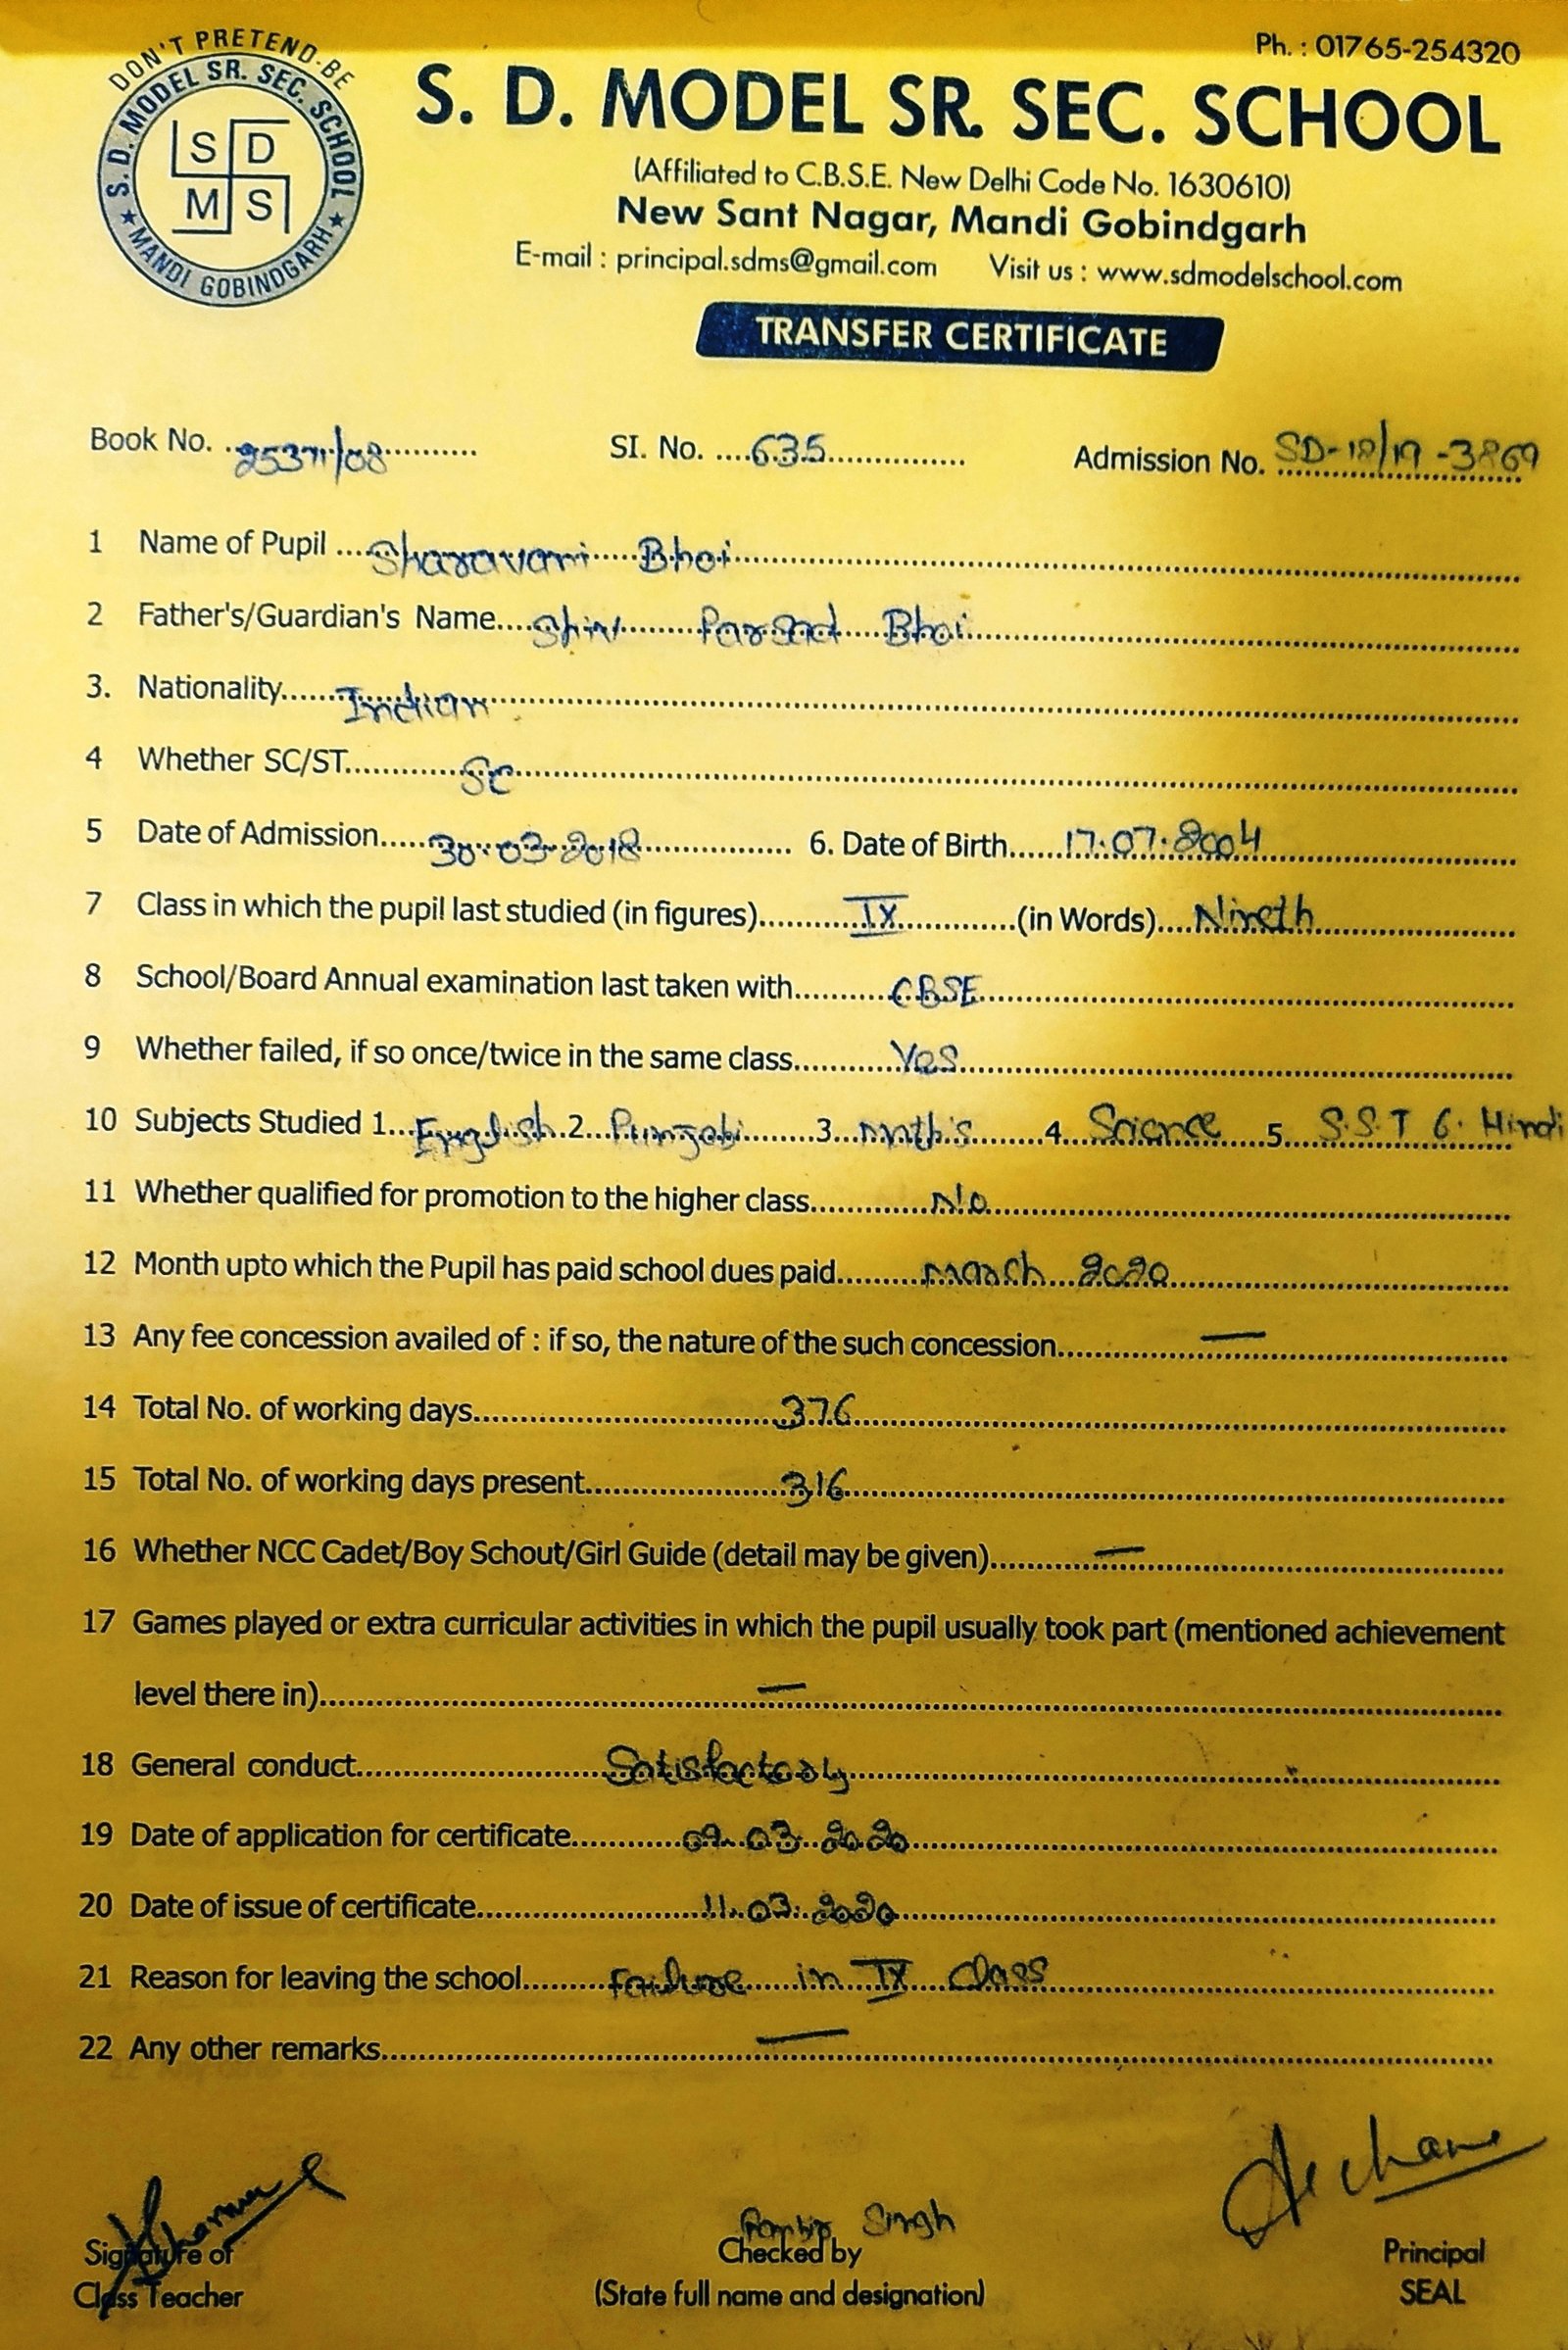 Ph. : 01765-254320
DON'T PRETEND-BE
S. D. MODEL SR. SEC. SCHOOL
★ MANDI GOBINDGARH ★
S D
M S
S. D. MODEL SR. SEC. SCHOOL
(Affiliated to C.B.S.E. New Delhi Code No. 1630610)
New Sant Nagar, Mandi Gobindgarh
E-mail : principal.sdms@gmail.com Visit us : www.sdmodelschool.com
TRANSFER CERTIFICATE
Book No. SI. No. 635 Admission No. SD-18/19-3869
1 Name of Pupil Sharavani Bhoi
2 Father's/Guardian's Name Shiv Parsad Bhoi
3. Nationality Indian
4 Whether SC/ST SC
5 Date of Admission 30.03.2018 6. Date of Birth 17.07.2004
7 Class in which the pupil last studied (in figures) IX (in Words) Nineth
8 School/Board Annual examination last taken with CBSE
9 Whether failed, if so once/twice in the same class Yes
10 Subjects Studied 1. English 2. Punjabi 3. math's 4. Science 5. S.S.T 6. Hindi
11 Whether qualified for promotion to the higher class No
12 Month upto which the Pupil has paid school dues paid march 2020
13 Any fee concession availed of : if so, the nature of the such concession —
14 Total No. of working days 376
15 Total No. of working days present 316
16 Whether NCC Cadet/Boy Schout/Girl Guide (detail may be given) —
17 Games played or extra curricular activities in which the pupil usually took part (mentioned achievement
level there in) —
18 General conduct Satisfactory
19 Date of application for certificate 09.03.2020
20 Date of issue of certificate 11.03.2020
21 Reason for leaving the school Failure in IX Class
22 Any other remarks —
Singh
Signature of Checked by Principal
Class Teacher (State full name and designation) SEAL